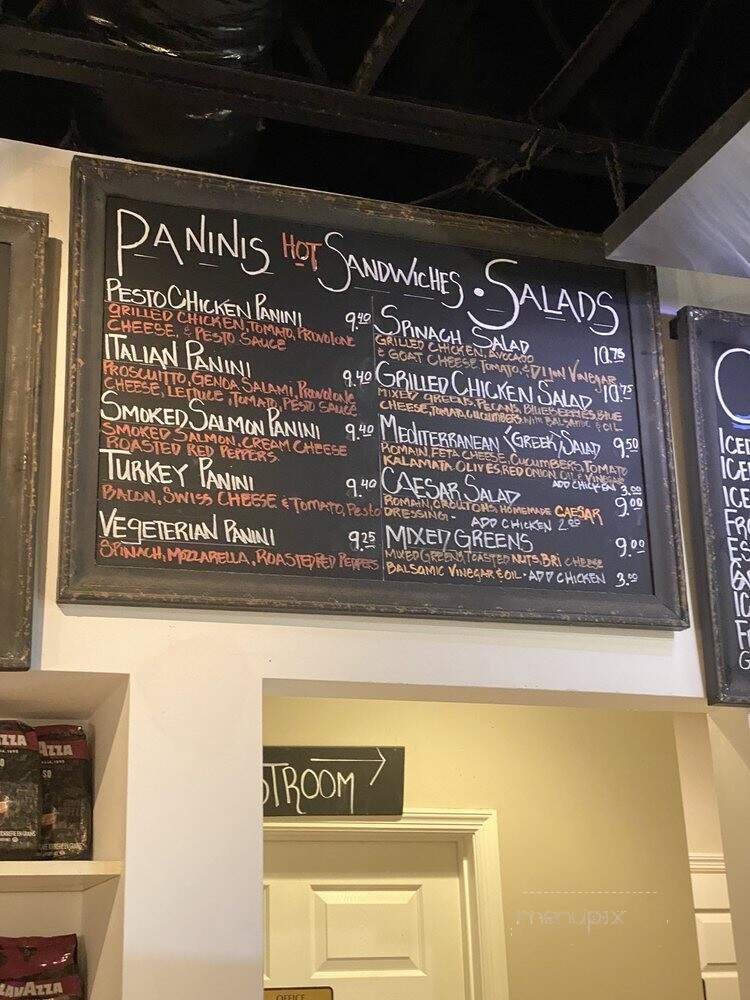 PANINIS HOT SANDWICHES • SALADS
PESTO CHICKEN PANINI 9.40
GRILLED CHICKEN, TOMATO, PROVOLONE
CHEESE, & PESTO SAUCE
ITALIAN PANINI 9.40
PROSCUITTO, GENOA SALAMI, PROVOLONE
CHEESE, LETTUCE, TOMATO, PESTO SAUCE
SMOKED SALMON PANINI 9.40
SMOKED SALMON, CREAM CHEESE
ROASTED RED PEPPERS.
TURKEY PANINI 9.40
BACON, SWISS CHEESE & TOMATO, Pesto
VEGETERIAN PANINI 9.25
SPINACH, MOZZARELLA, ROASTED RED PEPPERS
SPINACH SALAD 10.75
GRILLED CHICKEN, AVOCADO
& GOAT CHEESE TOMATO, & DIJON VINEGAR
GRILLED CHICKEN SALAD 10.75
MIXED GREENS, PECANS, BLUEBERRIES, BLUE
CHEESE, TOMATO, CUCUMBERS, with BALSAMIC & OIL
MEDITERRANEAN (GREEK) SALAD 9.50
ROMAIN, FETA CHEESE, CUCUMBERS, TOMATO
KALAMATA OLIVES, RED ONION, OIL & VINEGAR
ADD CHICKEN 3.00
CAESAR SALAD 9.00
ROMAIN, CROUTONS, HOMEMADE CAESAR
DRESSING - ADD CHICKEN 2.00
MIXED GREENS 9.00
MIXED GREENS, TOASTED NUTS, BRI CHEESE
BALSAMIC VINEGAR & OIL - ADD CHICKEN 3.00
ICED
ICE
ICE
STROOM
AZZA
LAVAZZA
OFFICE
menupix